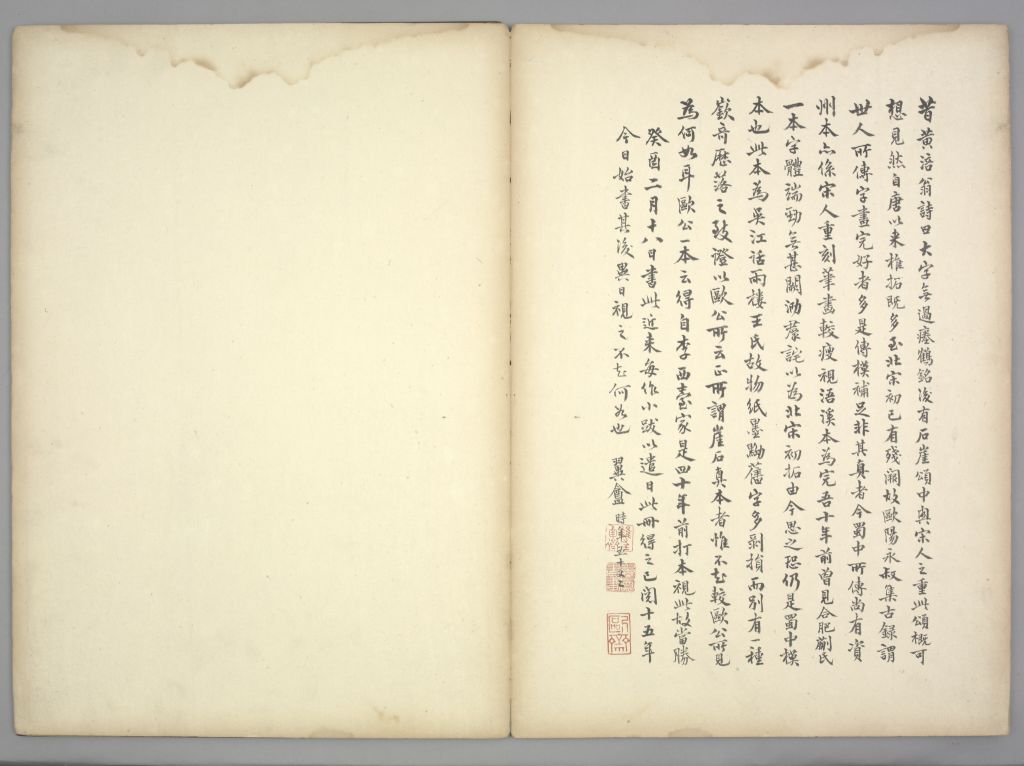 昔黃涪翁詩曰大字無過瘞鶴銘後有石崖頌中興宋人之重此頌概可
想見然自唐以來椎拓既多至北宋初已有殘闕故歐陽永叔集古録謂
世人所傳字畫完好者多是傳模補足非其真者今蜀中所傳尚有資
州本亦係宋人重刻筆畫較瘦視浯溪本為完吾十年前曾見合肥蒯氏
一本字體端勁無甚闕泐藂詫以為北宋初拓由今思之恐仍是蜀中模
本也此本為吳江話雨樓王氏故物紙墨黝舊字多剝損而別有一種
嶔奇歷落之致證以歐公所云正所謂崖石真本者惟不知較歐公所見
為何如耳歐公一本云得自李西臺家是四十年前打本視此故當勝
癸酉二月十八日書此近來每作小跋以遣日此冊得之已閱十五年
今日始書其後異日視之不知何如也 翼盦時年五十又二